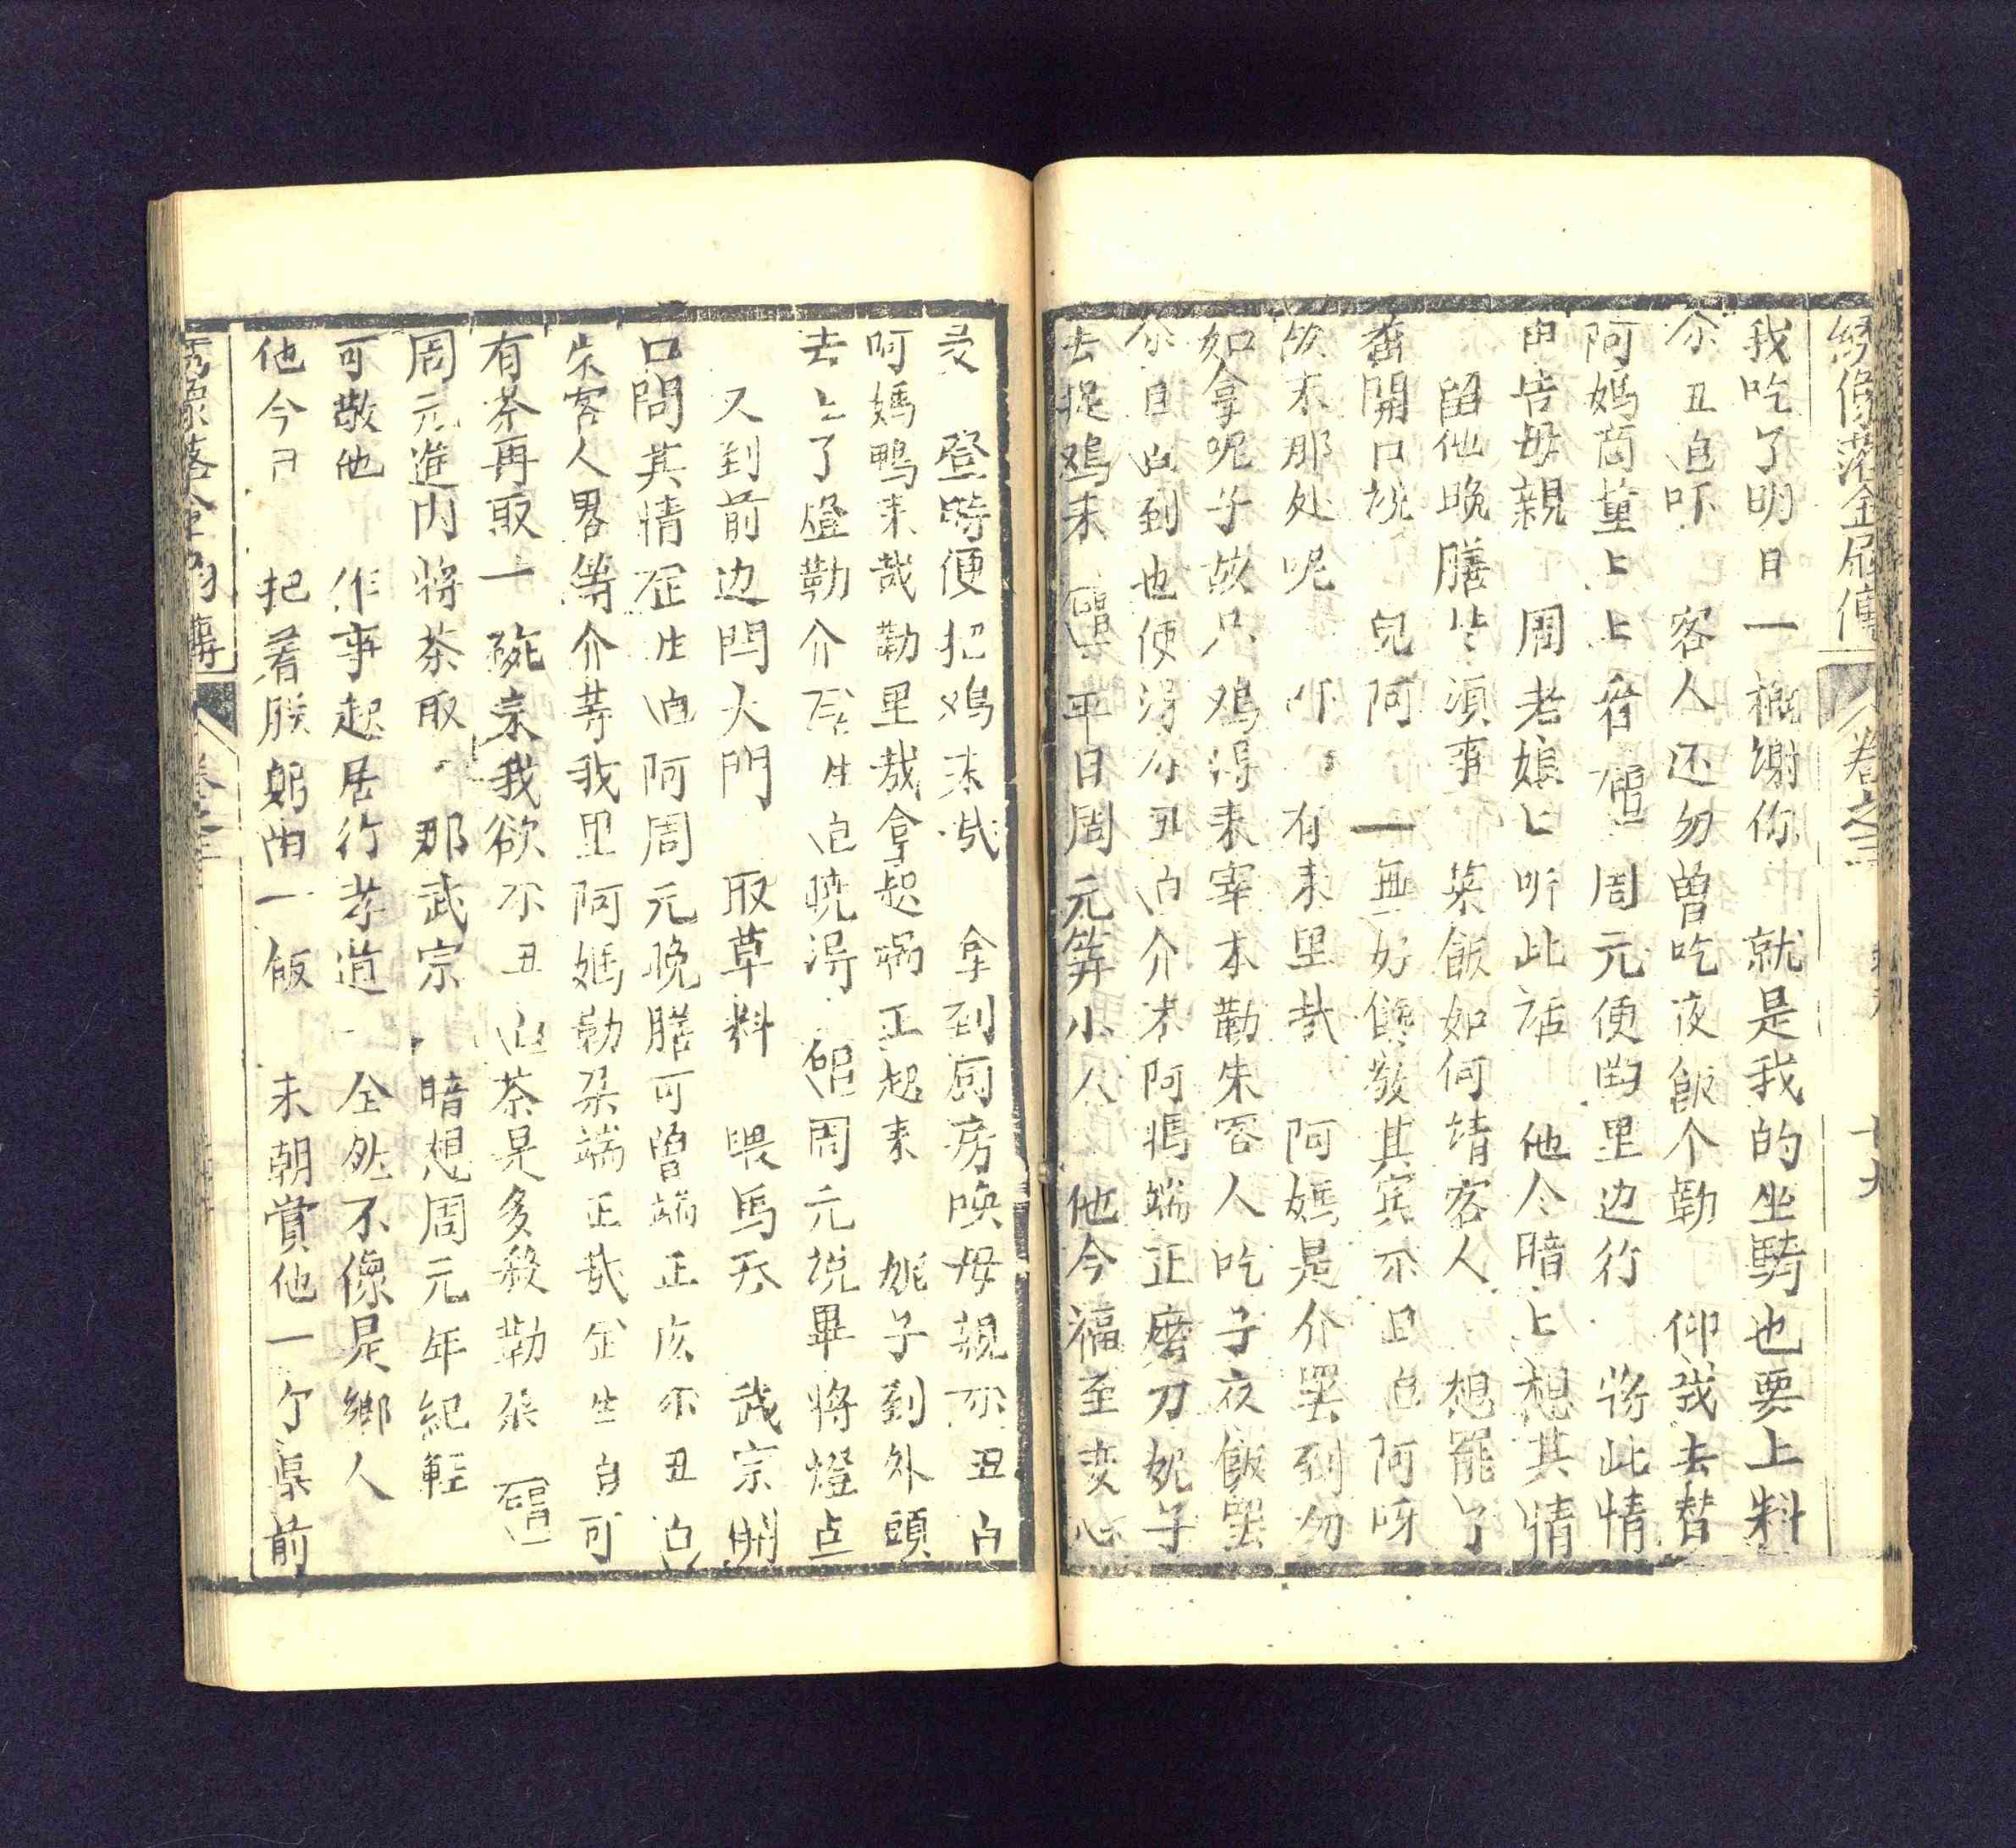 綉像落金扇傳 卷之三
我吃了明日一概謝你 就是我的坐騎也要上料
介丑白吓 客人还勿曾吃夜飯个勒 仰我去替
阿媽商量上上看 唱 周元便出里边行 将此情
申告母親 周老娘上听此話 他今暗上想其情
留他晚膳 須事 菜飯如何請客人 想罷了
開口說 兒阿 一無好 敬其賓不丑白阿呀
故末那处呢 吓 有来里哉 阿媽是介罢到勿
如拿呢子故只鸡得来宰本勒朱客人吃子夜飯罢
介旦白到也使得勿丑白介末阿媽端正磨刀妮子
去捉鸡来 唱 平日周元笄小人 他今福至变心
灵 登時便把鸡来 拿到厨房喚母親不丑白
阿媽鸭来哉勒里哉拿起 正起来 妮子到外頭
去上了燈勒介 生白晓得 唱周元説畢將燈点
又到前边門大門 取草料 喂馬 武宗開
口問其情 生白阿周元晚膳可曾端正広不丑白
客人畧等介等我里阿媽勒朶端正哉 生白可
有茶再取一 来我飲不丑白茶是多殺勒朶 唱
周元進内將茶取 那武宗 暗想周元年紀輕
可敬他 作事起居行孝道 全然不像是鄉人
他今日 把着朕躬 一飯 未朝賞他一个 前
卷之三